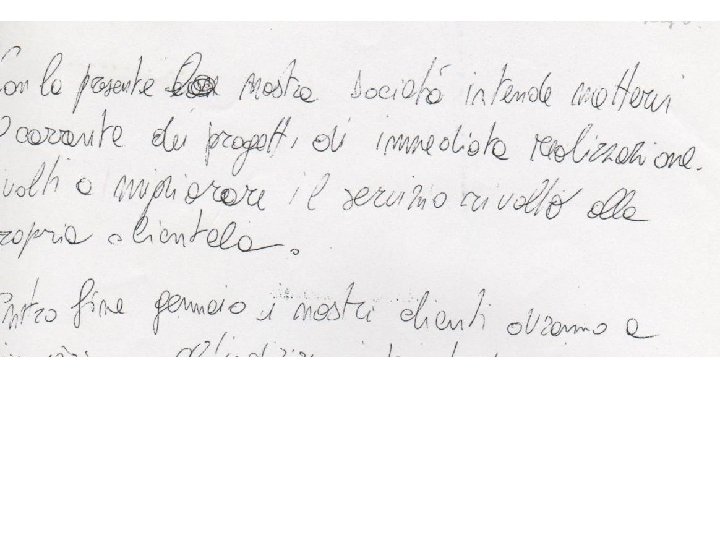 on la presente la nostra società intende mettervi
corrente dei progetti di immediata realizzazione.
volti a migliorare il servizio rivolto alla
ropria clientela.
ntro fine gennaio i nostri clienti avranno a